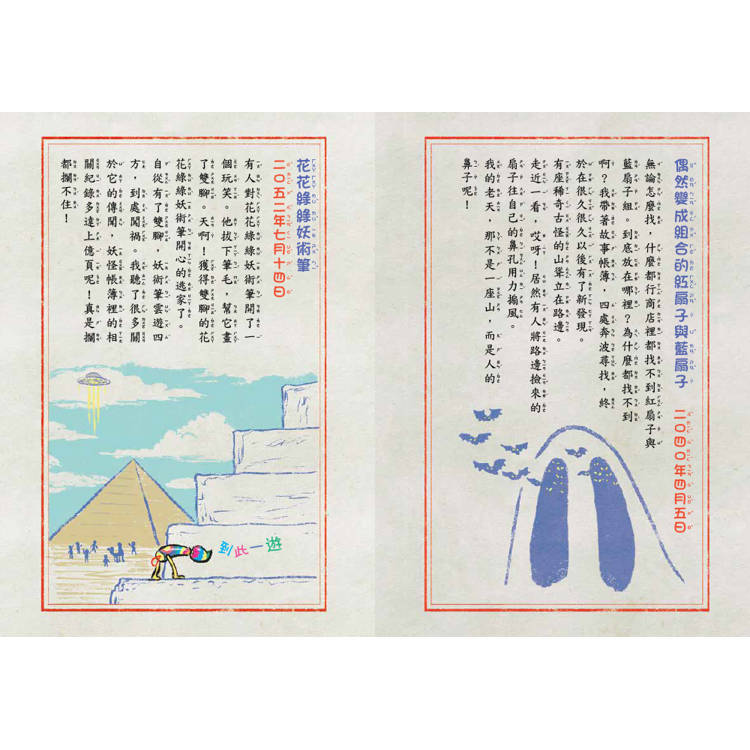 偶然變成組合的紅扇子與藍扇子 二〇四〇年四月五日
無論怎麼找，什麼都行商店裡都找不到紅扇子與
藍扇子組。到底放在哪裡？為什麼都找不到
啊？我帶著故事帳簿，四處奔波尋找，終
於在很久很久以後有了新發現。
有座稀奇古怪的山聳立在路邊。
走近一看，哎呀！居然有人將路邊撿來的
扇子往自己的鼻孔用力搧風。
我的老天，那不是一座山，而是人的
鼻子呢！
花花綠綠妖術筆
二〇五二年七月十四日
有人對花花綠綠妖術筆開了一
個玩笑。他拔下筆毛，幫它畫
了雙腳。天啊！獲得雙腳的花
花綠綠妖術筆開心的逃家了。
自從有了雙腳，妖術筆雲遊四
方，到處闖禍。我聽了很多關
於它的傳聞，妖怪帳簿裡的相
關紀錄多達上億頁呢！真是攔
都攔不住！
到此一遊